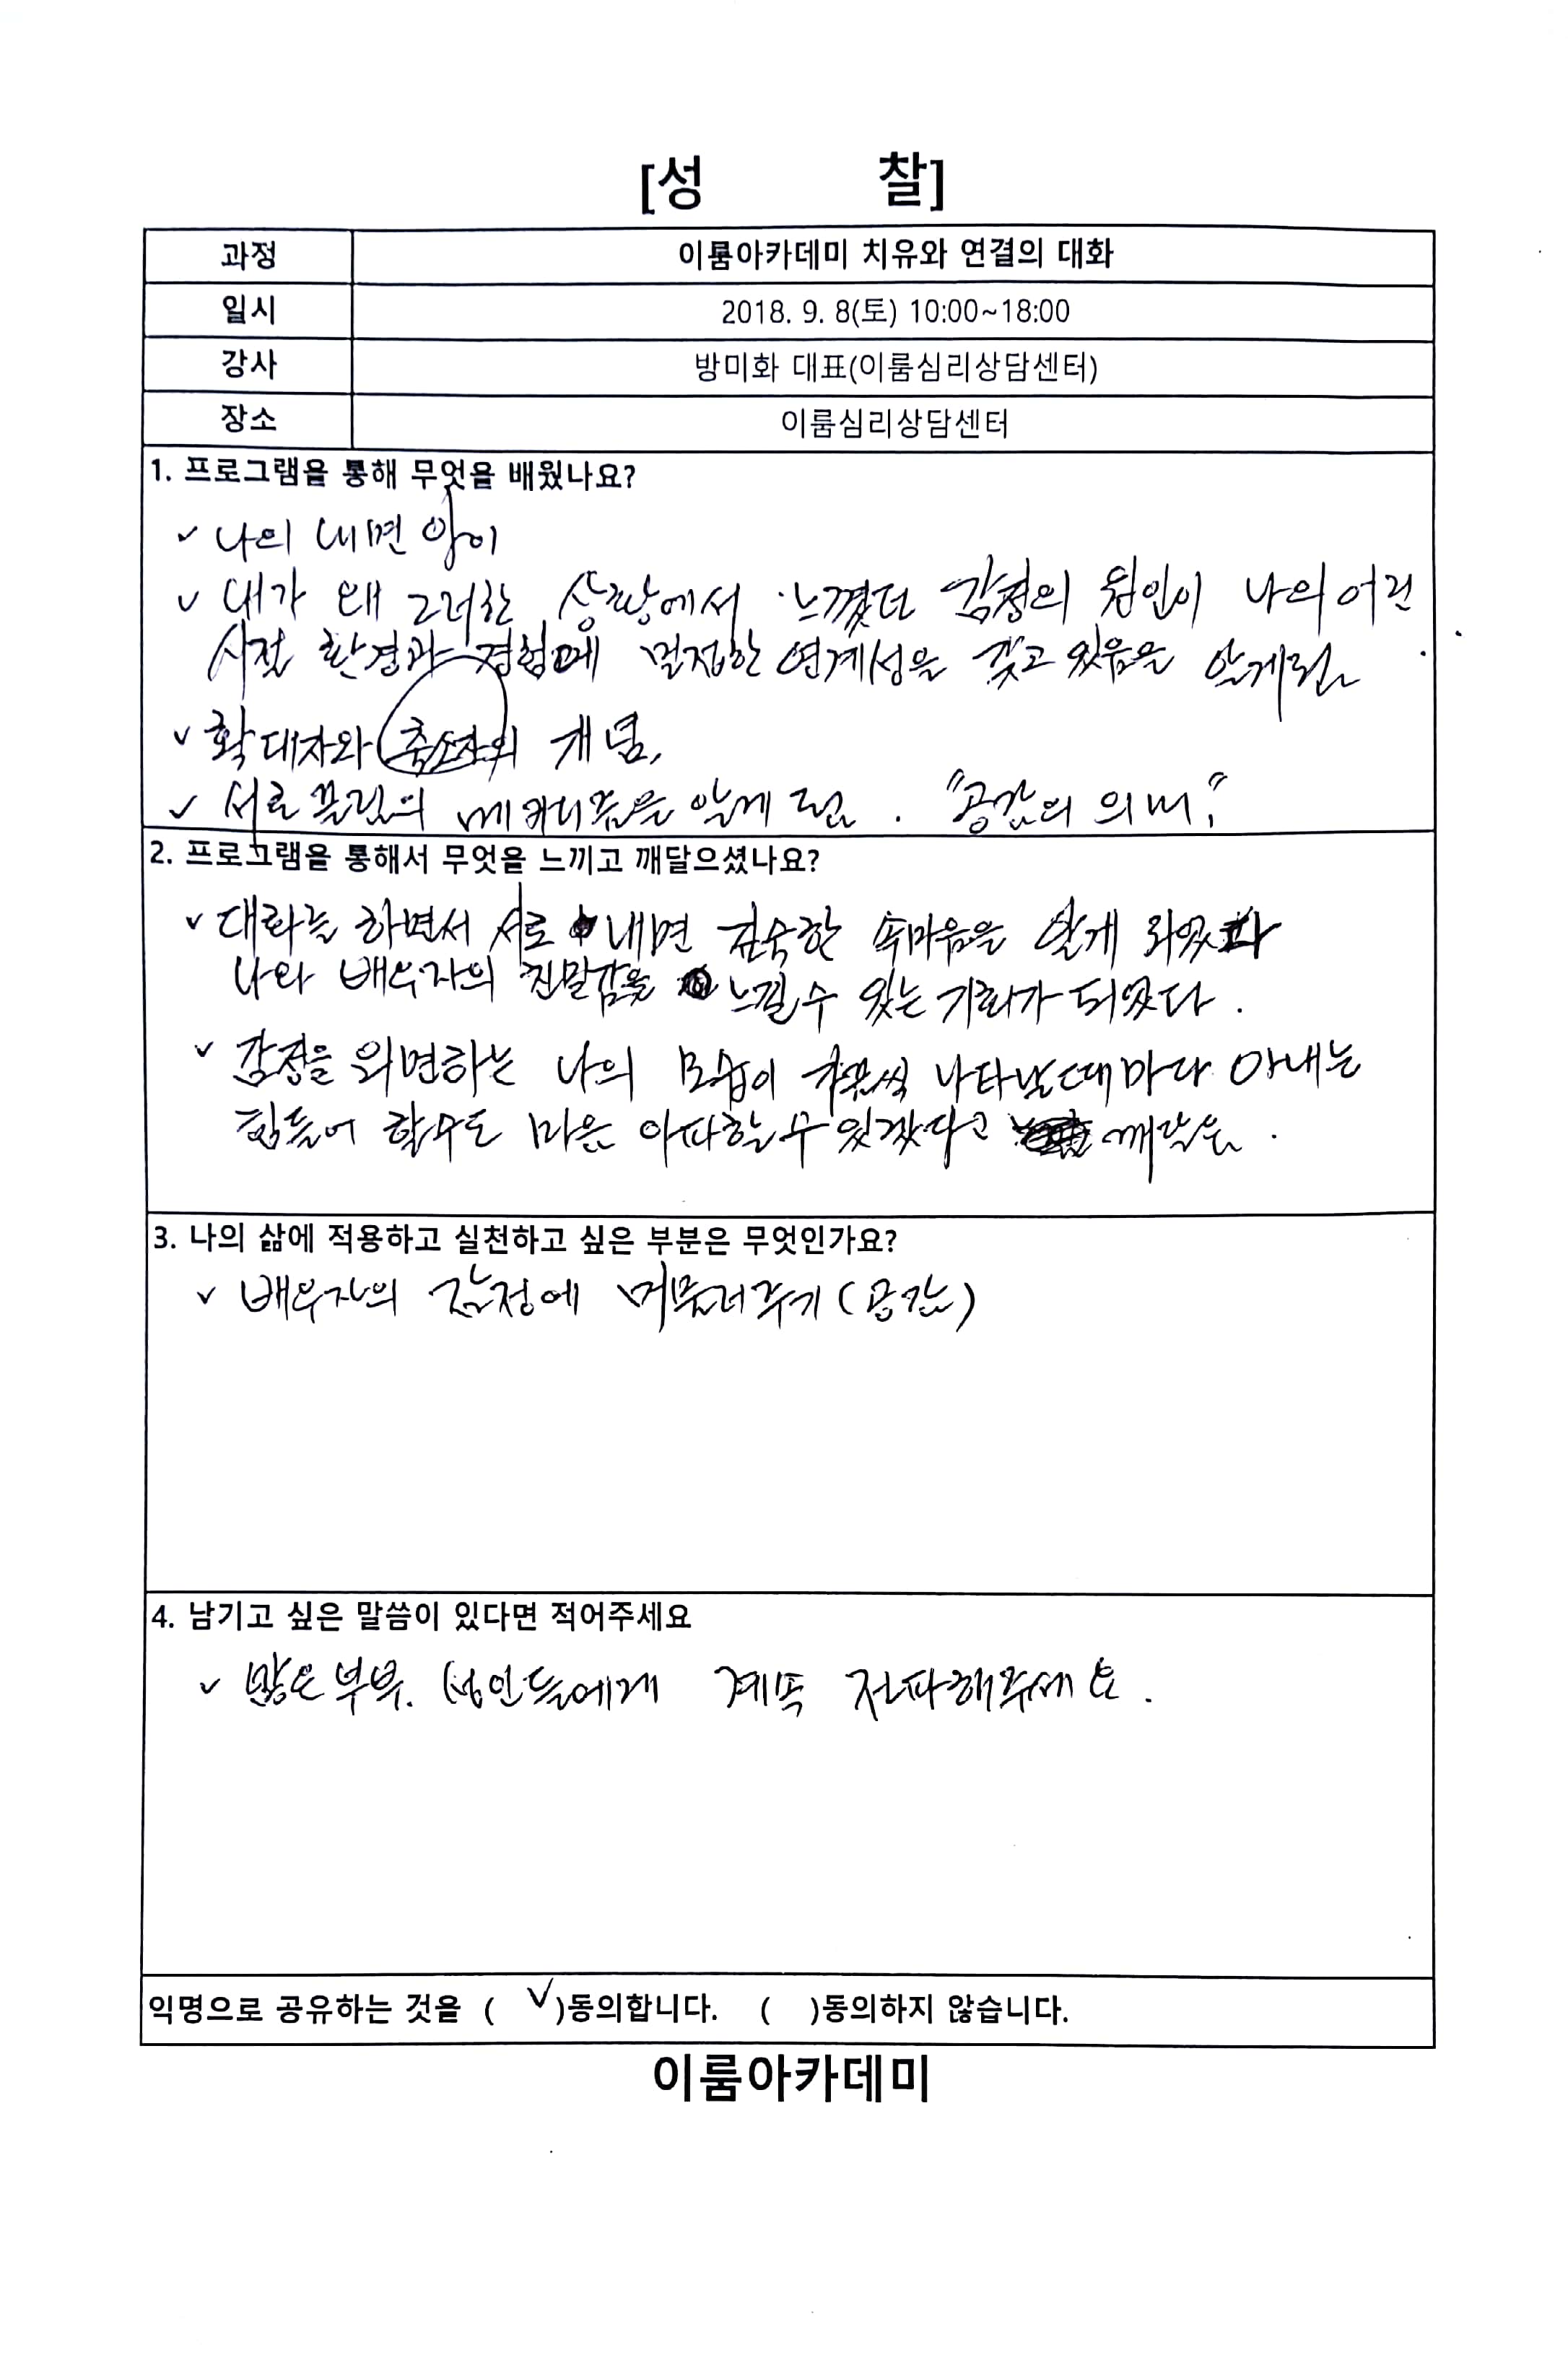 [성 찰]
과정 이룸아카데미 치유와 연결의 대화
일시 2018. 9. 8(토) 10:00~18:00
강사 방미화 대표(이룸심리상담센터)
장소 이룸심리상담센터
1. 프로그램을 통해 무엇을 배웠나요?
✓ 나의 내면 아이
✓ 내가 왜 그러한 상황에서 느꼈던 감정의 원인이 나의 어린
시절 환경과 경험에 밀접한 연계성을 갖고 있음을 알게됨
✓ 확대자와 축소자의 개념,
✓ 서로 끌림의 메커니즘을 알게 됨. "공감의 의미"
2. 프로그램을 통해서 무엇을 느끼고 깨달으셨나요?
✓ 대화를 하면서 서로 내면 깊숙한 속마음을 알게 되었다
나와 배우자의 친밀감을 느낄수 있는 기회가 되었다.
✓ 감정을 외면하는 나의 모습이 가끔씩 나타날때마다 아내는
힘들어 할수도 마음 아파할수 있겠다고 깨달음.
3. 나의 삶에 적용하고 실천하고 싶은 부분은 무엇인가요?
✓ 배우자의 감정에 머물러주기 (공감)
4. 남기고 싶은 말씀이 있다면 적어주세요
✓ 많은 부부. 성인들에게 계속 전파해주세요.
익명으로 공유하는 것을 ( ✓ )동의합니다. ( )동의하지 않습니다.
이룸아카데미